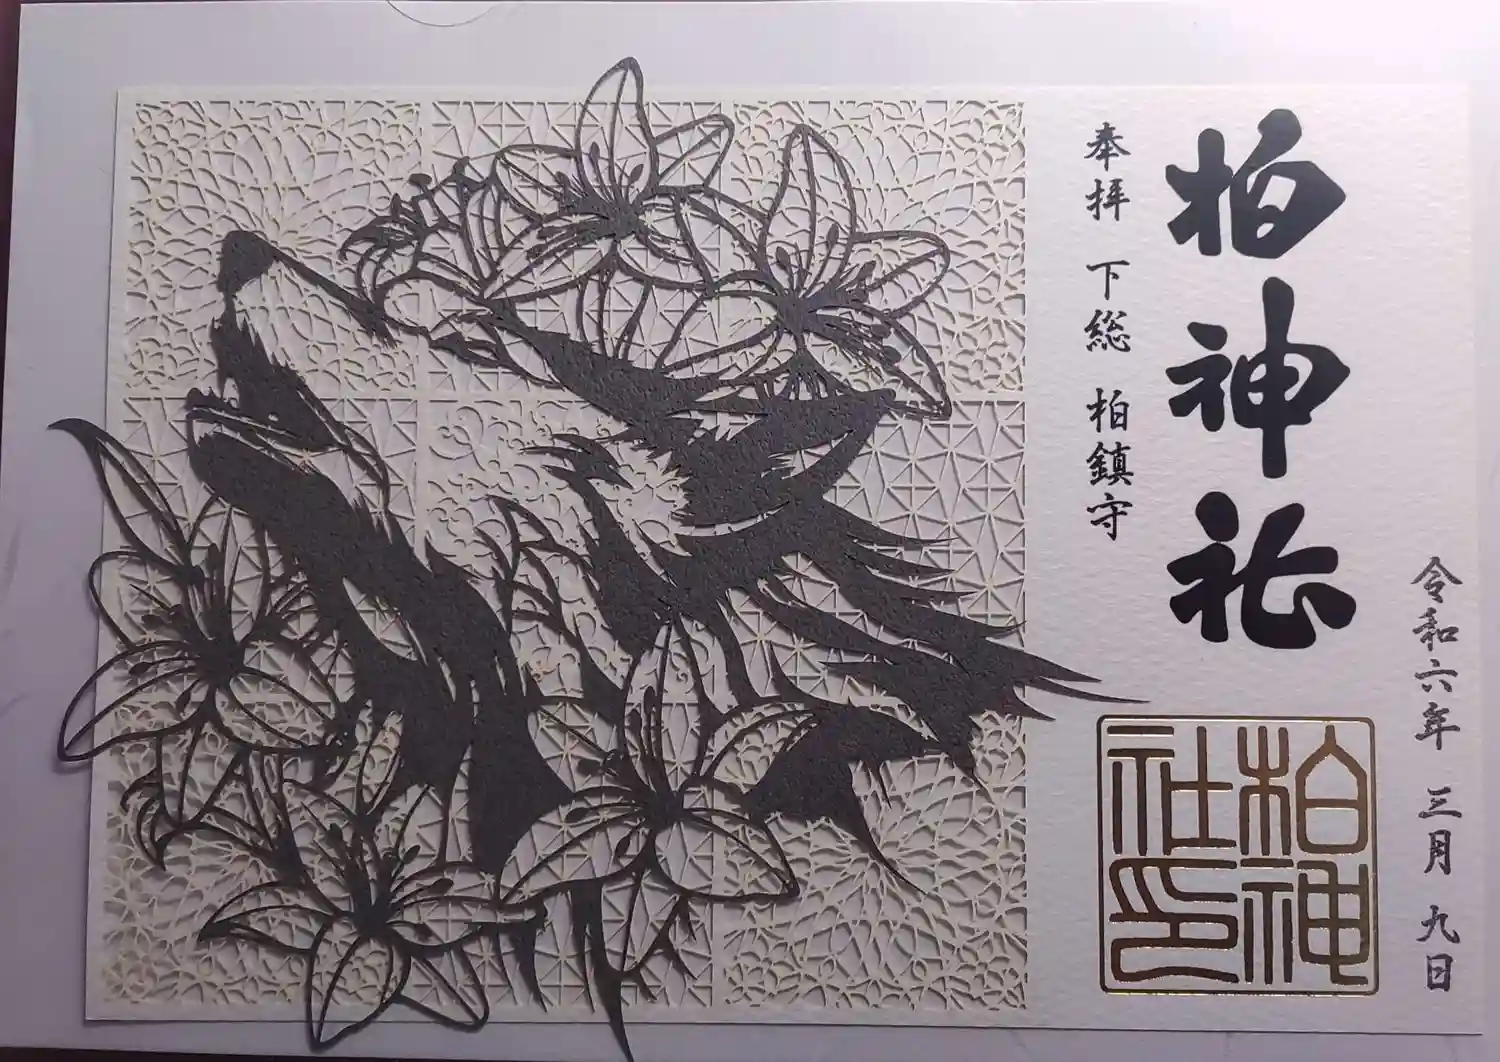 令和六年 三月 九日
柏神社
奉拝 下総 柏鎮守
柏神
社印